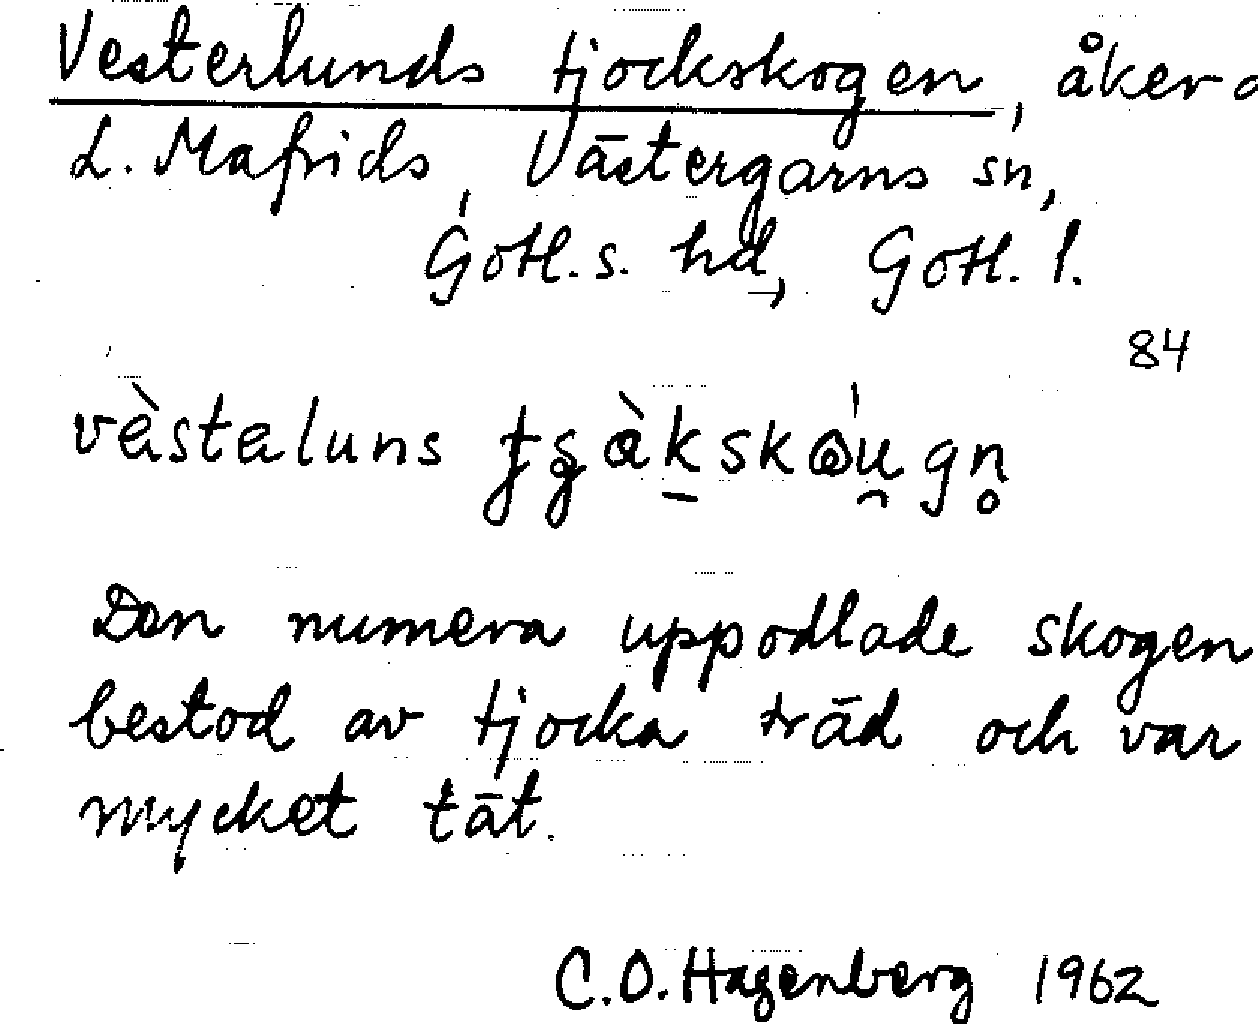 Vesterlunds tjockskogen, åker
L. Mafrids, Västergarns sn,
Gotl. s. hd, Gotl. l.
84
Den numera uppodlade skogen
bestod av tjocka träd och var
mycket tät.
C.O. Hagenberg 1962